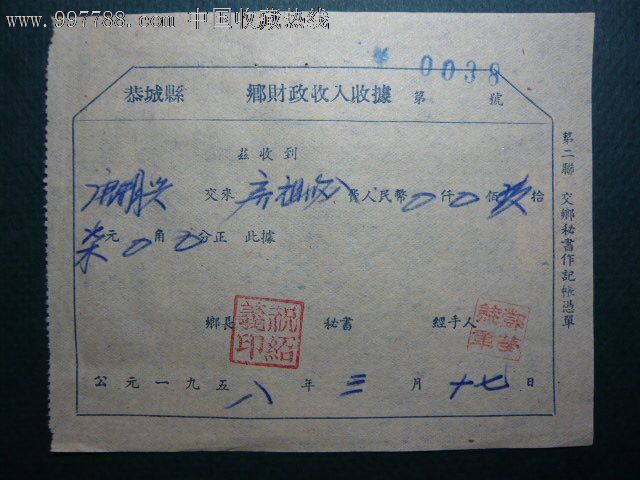 www.997788.com 中国收藏热线
0038
恭城縣 鄉財政收入收據 第 號
茲收到
交來 房祖收入 費人民幣0仟0佰玖拾
柒元0角0分正 此據
鄉長 祝紹義印 秘書 經手人
公元一九五八年三月十七日
第二聯 交鄉秘書作記帳憑單